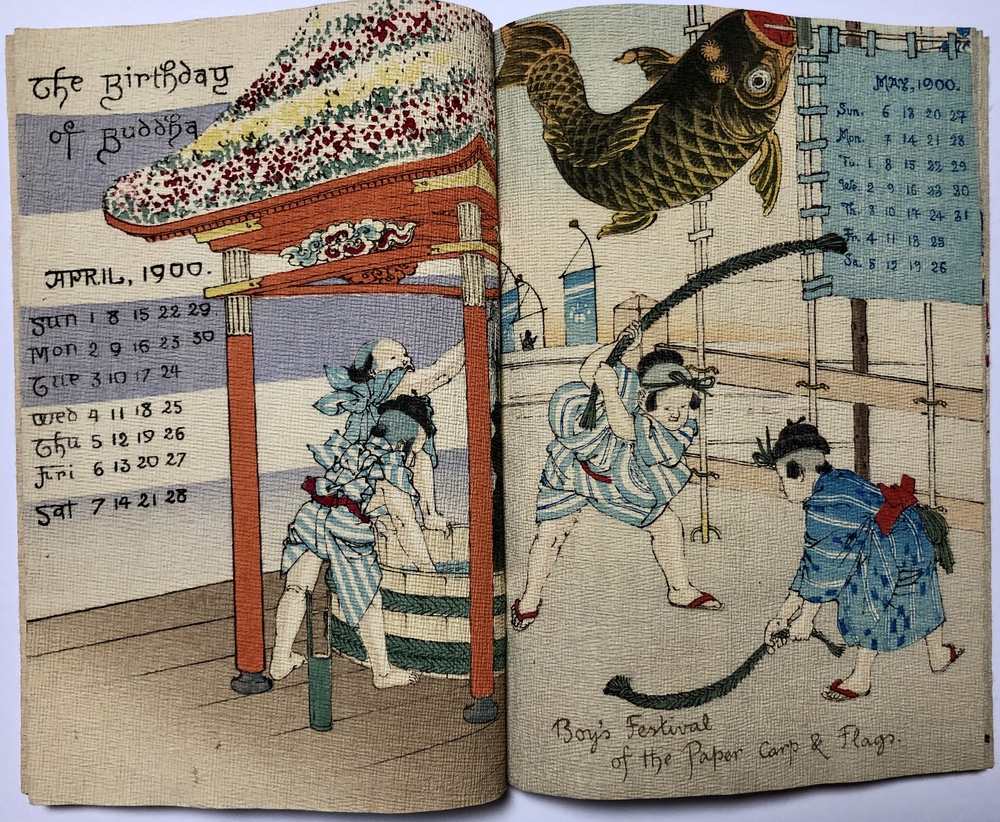 The Birthday
of Buddha
APRIL, 1900.
Sun 1 8 15 22 29
Mon 2 9 16 23 30
Tue 3 10 17 24
Wed 4 11 18 25
Thu 5 12 19 26
Fri 6 13 20 27
Sat 7 14 21 28
MAY, 1900.
Sun. 6 13 20 27
Mon. 7 14 21 28
Tu. 1 8 15 22 29
We. 2 9 16 23 30
Th. 3 10 17 24 31
Fr. 4 11 18 25
Sa. 5 12 19 26
Boy's Festival
of the Paper Carp & Flags.